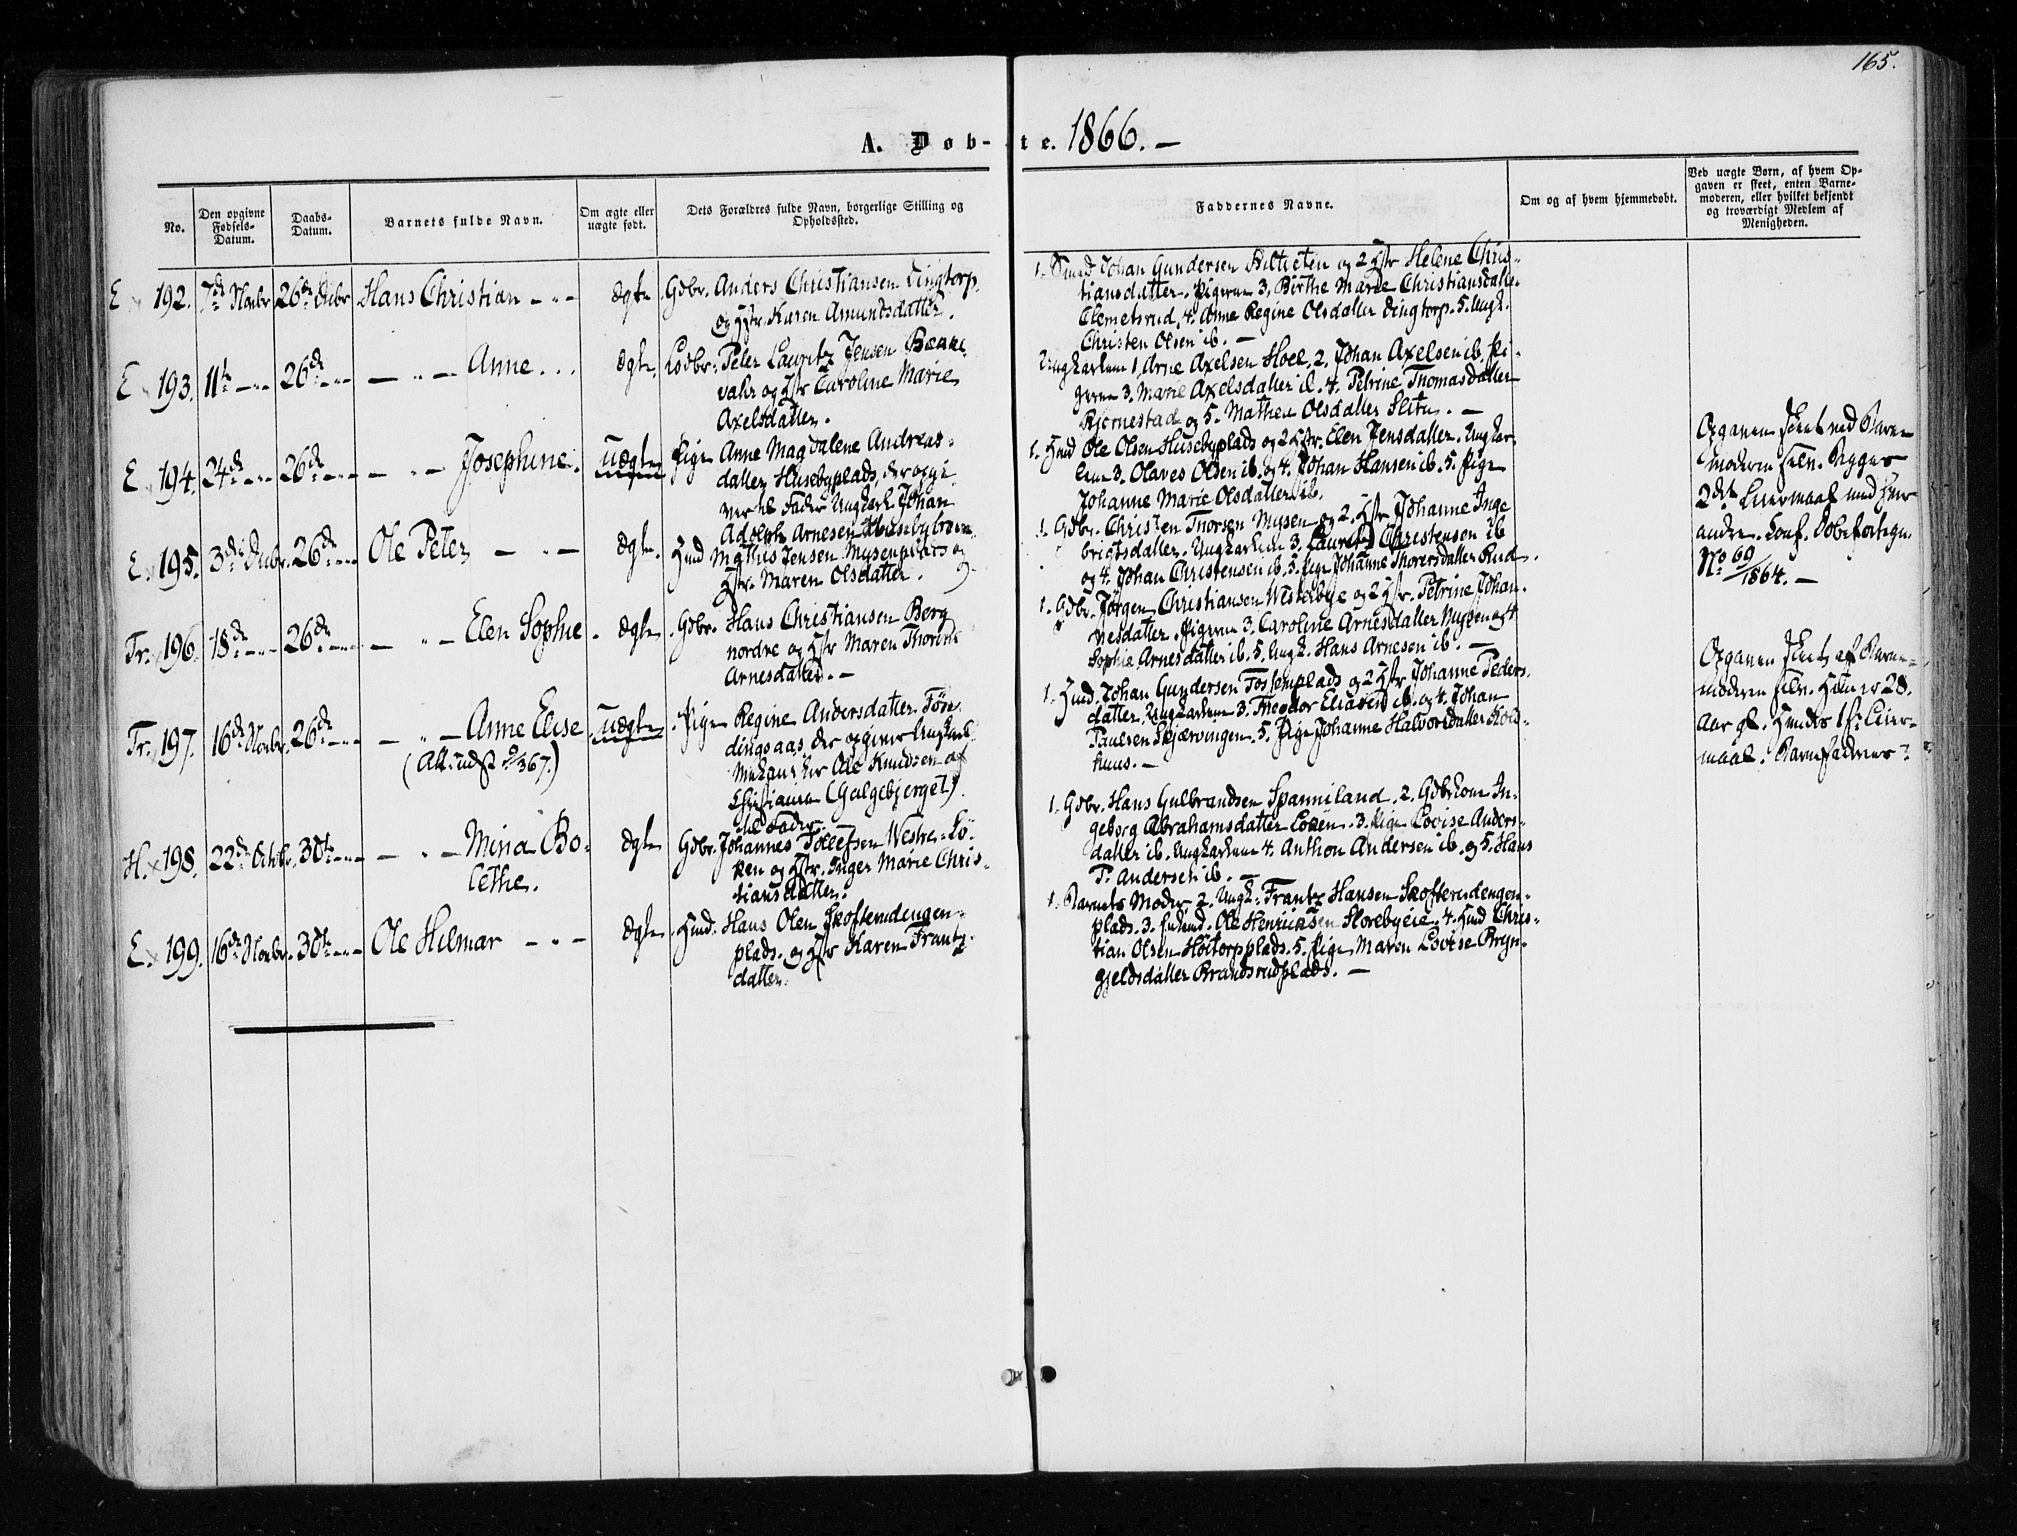 165.
A. Døb- te. 1866. —
No.
Den opgivne Fødsels-Datum.
Daabs-Datum.
Barnets fulde Navn.
Om ægte eller uægte født.
Dets Forældres fulde Navn, borgerlige Stilling og Opholdssted.
Faddernes Navne.
Om og af hvem hjemmedøbt.
Ved uægte Børn, af hvem Op-
gaven er skeet, enten Barne-
moderen, eller hvilket bekjendt
og troværdigt Medlem af
Menigheden.
E 192. 7de Novbr 26de Dcbr Hans Christian — " — ægte Gdbr. Anders Christiansen Dingtorp
og Hstr Karen Amundsdatter.
1. Smed Johan Gundersen og 2 Hstr Helene Chris-
tiansdatter. Pigerne 3. Birthe Marie Christiansdatter
Clemetsrud, 4. Anne Regine Olsdatter Dingtorp. 5. Ungk.
Christen Olsen ib. —
E 193. 11te — " — 26de — " — — " — Anne . . . ægte. Peter Lauritz Jensen
og Hstr Caroline Marie
Axelsdatter.
Ungkarlene 1, Arne Axelsen Hoel, 2. Johan Axelsen ib. Pi-
gerne 3. Marie Axelsdatter ib. 4. Petrine Thomasdatter
Kjernestad og 5. Mathea Olsdatter Slitu. —
E 194. 24de — " — 26de — " — — " — Josephine. uægte Pige Anne Magdalene Andreas-
datter Husebyplads, der opgi-
ver til Fader Ungkarl Johan
Adolph Arnesen
1. Hmd Ole Olsen Husebyplads og 2 Hstr. Elen Jensdatter. Ungkar-
lene 3. Olaves Olsen ib. og 4. Johan Hansen ib. 5. Pige
Johanne Marie Olsdatter ib.
Opgaven skeet ved Barne-
moderen selv. Begges
2det Leiermaal med hver-
andre. Conf. Døbefortegn.
No 69/1864. —
E. 195. 3die Dcbr. 26de — " — Ole Peter — " — ægte. Hmd Mathis Jensen Mysenplads og
Hstr. Maren Olsdatter.
1. Gdbr. Christen Thorsen Mysen og 2. Hstr Johanne Inge
brigtsdatter. Ungkarlene 3. Laurits Christensen ib
og 4. Johan Christensen ib. 5. Pige Johanne Thorersdatter Rud.
Tr. 196 18de — " — 26de — " — — " — Elen Sophie. ægte. Gdbr. Hans Christiansen Berg
nordre og Hstr Maren
Arnesdatter. —
1. Gdbr. Jörgen Christiansen Westerbye og 2 Hstr. Petrine Johan-
nesdatter. Pigerne 3. Caroline Arnesdatter Mysen og 4
Sophie Arnesdatter ib. 5. Ungk. Hans Arnesen ib. —
Tr. 197. 16de Novbr. 26de — " — — " — Anne Elise uægte. Pige Regine Andersdatter
der opgiver Ungkarl
Ole Knudsen af
Christiania (Galgebjerget)
til Fader.
(Att. udst 367.)
1. Hmd. Johan Gundersen Fossumplads og 2 Hstr Johanne Peders-
datter. Ungkarlene 3. Theodor Eliasen ib og 4. Johan
Paulsen Skjærvingen. 5. Pige Johanne Halvorsdatter
huus. —
Opgaven skeet af Barne-
moderen selv. Hun er 28
Aar gl. Hendes 1ste Leier-
maal. Barnefaderens ?
H. 198. 22de Octobr. 30te — " — — " — Mina Bo-
lethe. ægte Gdbr. Johannes Tollefsen Westre-Lö-
ken og Hstr. Inger Marie Chris-
tiansdatter.
1. Gdbr. Hans Gulbrandsen Spanniland. 2. Gdbkone In-
geborg Abrahamsdatter Löken. 3. Pige Lovise Anders-
datter ib. Ungkarlene 4. Anthon Andersen ib. og 5. Hans
P. Andersen ib. —
E. 199. 16de Novbr. 30te — " — Ole Hilmar — " — ægte. Hmd. Hans Olsen Skofterudengen-
plads. og Hstr Karen Frantz-
datter.
1. Barnets Moder 2. Ungk. Frantz Hansen Skofterudengen-
plads. 3. Ole Henriksen Slorebyeie. 4. Hmd Chris-
tian Olsen Höitorpplads. 5. Pige Maren Lovise Bryn-
gjeldsdatter Brandsrudplads. —